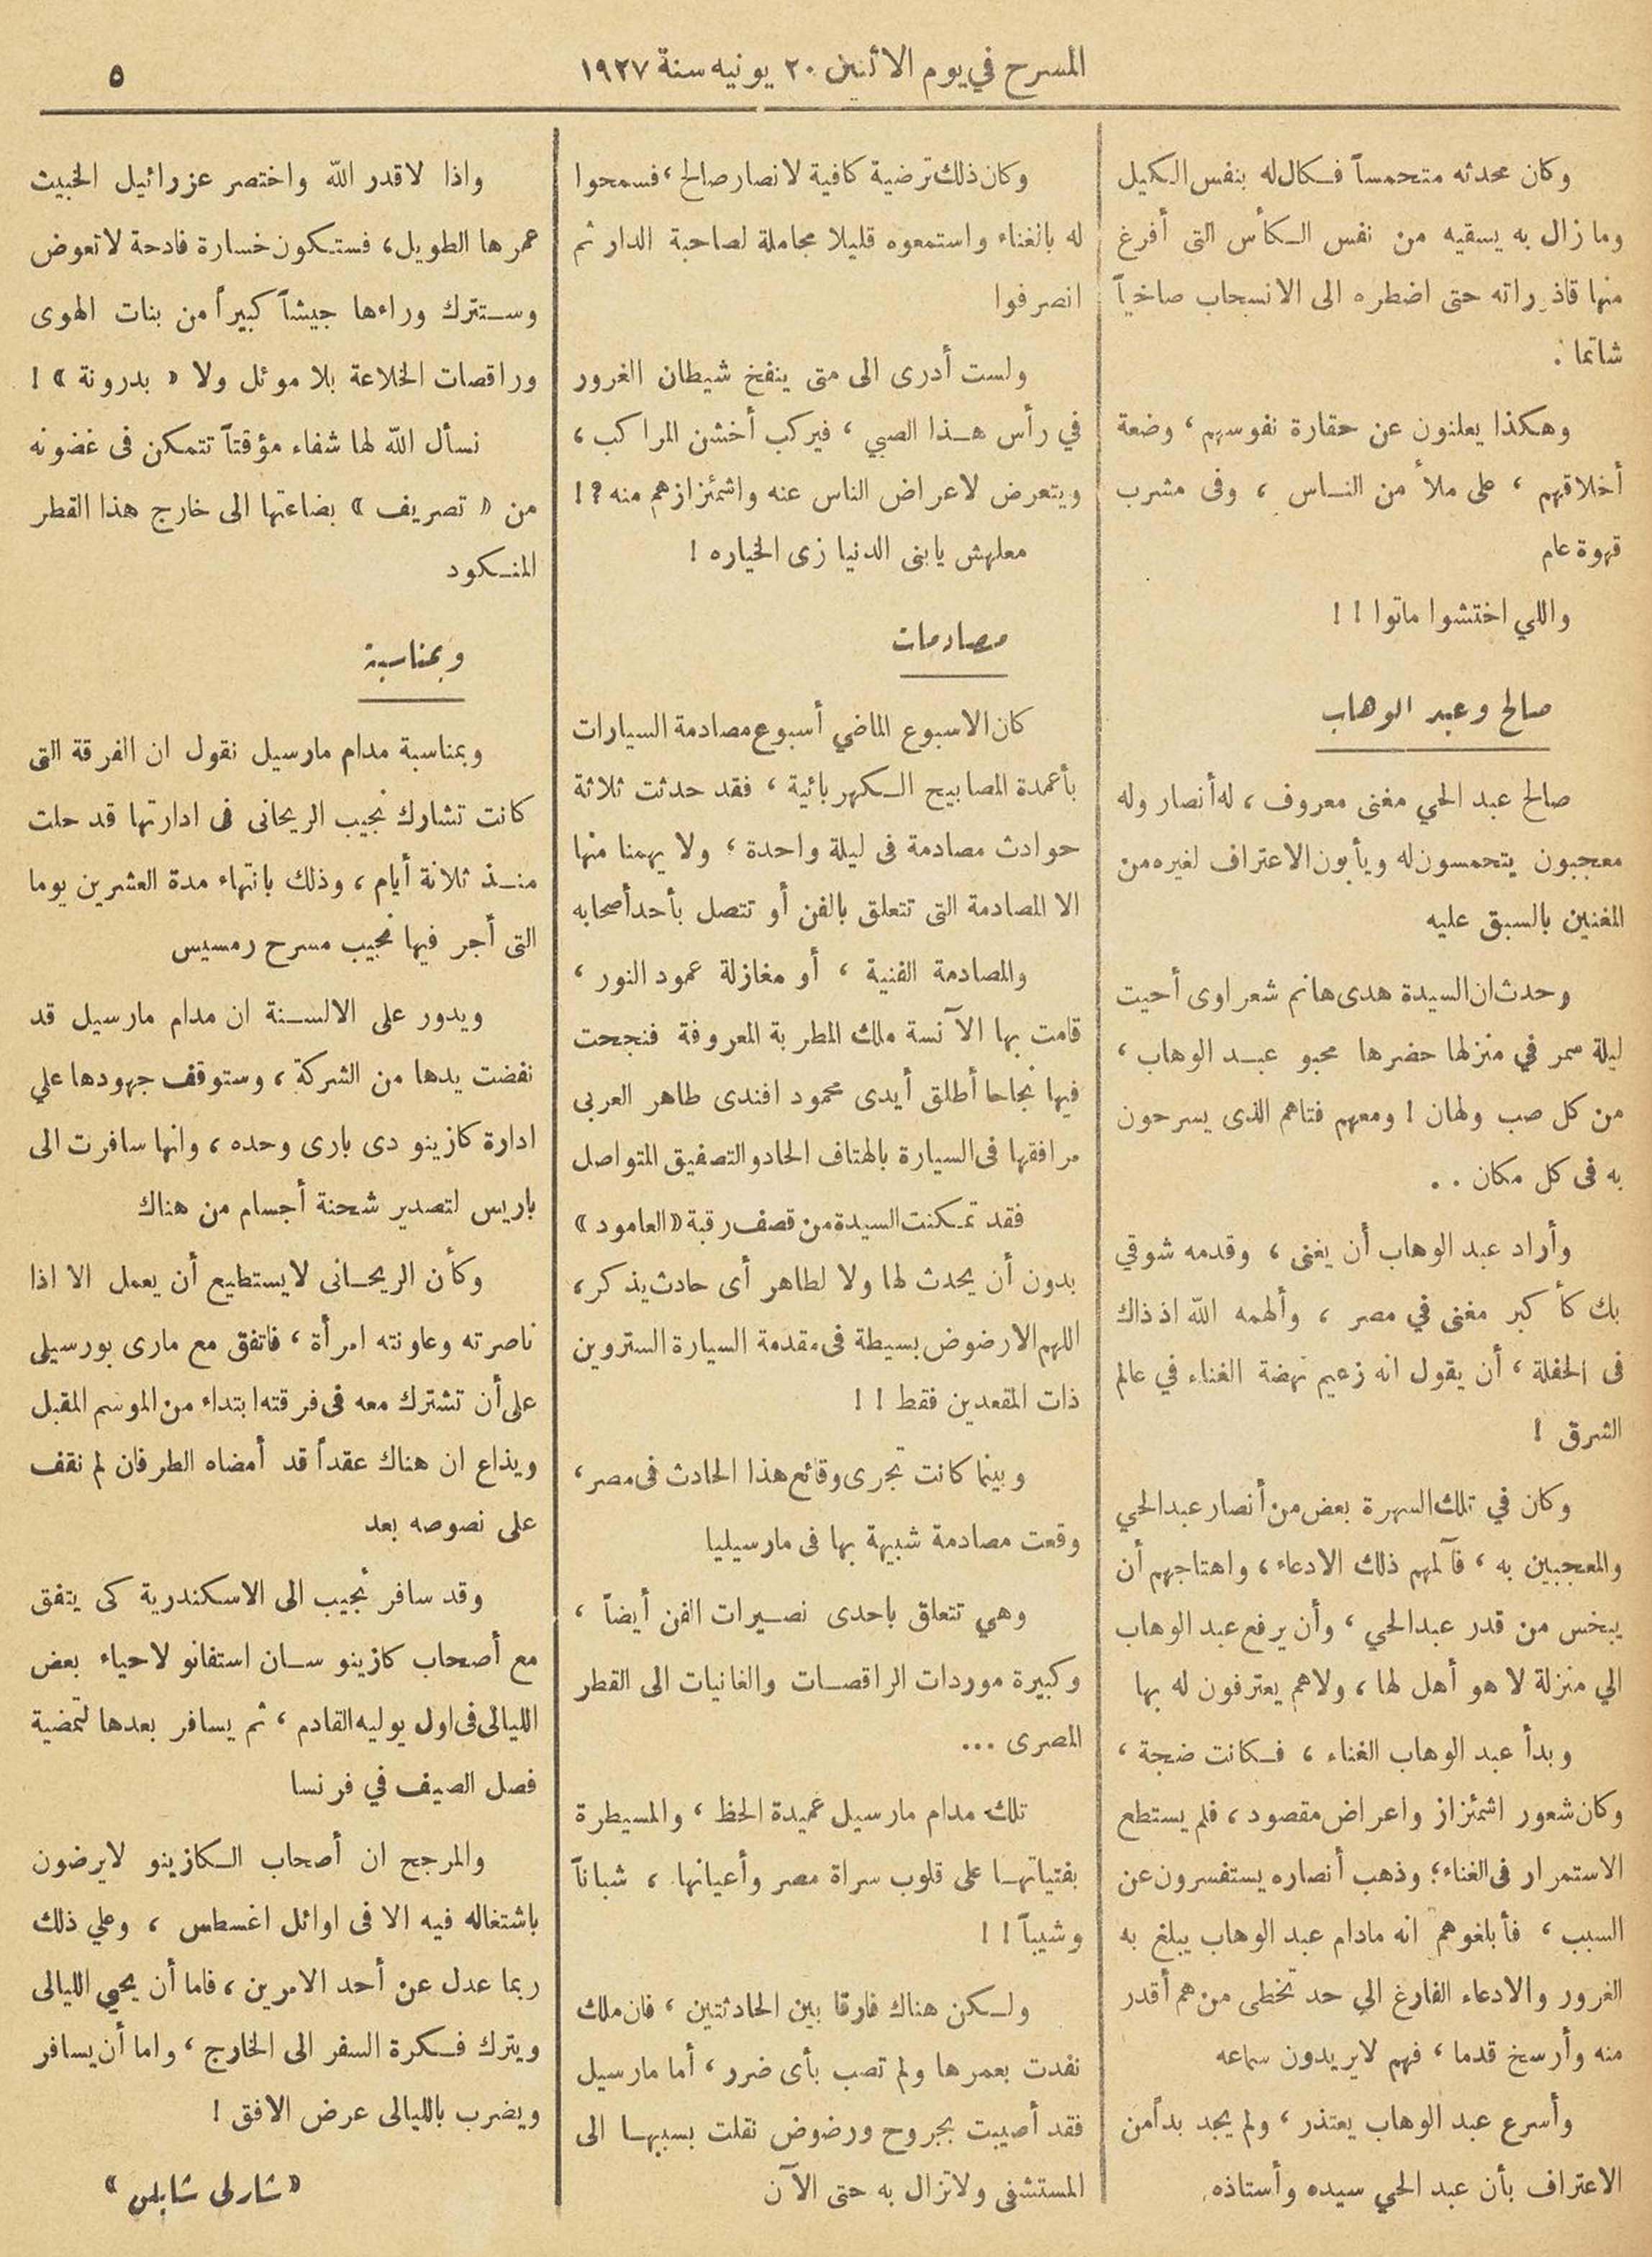 المسرح في يوم الاثنين ٢٠ يونيه سنة ١٩٢٧
٥
وكان محدثه متحمساً فكال له بنفس الكيل
وما زال به يسقيه من نفس الكأس التى أفرغ
منها قاذوراته حتى اضطره الى الانسحاب صاخباً
شاتما .
وهكذا يعلنون عن حقارة نفوسهم ، وضعة
أخلاقهم ، على ملأ من الناس ، وفى مشرب
قهوة عام
واللي اختشوا ماتوا ! !
صالح وعبد الوهاب
صالح عبد الحي مغنى معروف ، له أنصار وله
معجبون يتحمسون له ويأبون الاعتراف لغيره من
المغنين بالسبق عليه
وحدث ان السيدة هدى هانم شعراوى أحيت
ليلة سمر في منزلها حضرها محبو عبد الوهاب ،
من كل صب ولهان ! ومعهم فتاهم الذى يسرحون
به فى كل مكان . .
وأراد عبد الوهاب أن يغنى ، وقدمه شوقي
بك كأكبر مغنى في مصر ، وألهمه الله اذ ذاك
فى الحفلة ، أن يقول انه زعيم نهضة الغناء في عالم
الشرق !
وكان في تلك السهرة بعض من أنصار عبد الحي
والمعجبين به ، فآلمهم ذلك الادعاء ، واهتاجهم أن
يبخس من قدر عبد الحي ، وأن يرفع عبد الوهاب
الي منزلة لا هو أهل لها ، ولا هم يعترفون له بها
وبدأ عبد الوهاب الغناء ، فكانت ضجة ،
وكان شعور اشمئزاز واعراض مقصود ، فلم يستطع
الاستمرار فى الغناء ؛ وذهب أنصاره يستفسرون عن
السبب ، فأبلغوهم انه مادام عبد الوهاب يبلغ به
الغرور والادعاء الفارغ الي حد تخطى من هم أقدر
منه وأرسخ قدما ، فهم لايريدون سماعه
وأسرع عبد الوهاب يعتذر ، ولم يجد بداً من
الاعتراف بأن عبد الحي سيده وأستاذه.
وكان ذلك ترضية كافية لانصار صالح ، فسمحوا
له بالغناء واستمعوه قليلا مجاملة لصاحبة الدار ثم
انصرفوا
ولست أدرى الى متى ينفخ شيطان الغرور
في رأس هذا الصبي ، فيركب أخشن المراكب ،
ويتعرض لاعراض الناس عنه واشمئزازهم منه ؟ !
معلهش يابنى الدنيا زى الخياره !
مصادمات
كان الاسبوع الماضي أسبوع مصادمة السيارات
بأعمدة المصابيح الكهربائية ، فقد حدثت ثلاثة
حوادث مصادمة فى ليلة واحدة ؛ ولا يهمنا منها
الا المصادمة التى تتعلق بالفن أو تتصل بأحد أصحابه
والمصادمة الفنية ، أو مغازلة عمود النور ،
قامت بها الآنسة ملك المطربة المعروفة فنجحت
فيها نجاحا أطلق أيدى محمود افندى طاهر العربى
مرافقها فى السيارة بالهتاف الحاد والتصفيق المتواصل
فقد تمكنت السيدة من قصف رقبة « العامود »
بدون أن يحدث لها ولا لطاهر أى حادث يذكر ،
اللهم الا رضوض بسيطة فى مقدمة السيارة الستروين
ذات المقعدين فقط ! !
وبينما كانت تجرى وقائع هذا الحادث فى مصر ،
وقعت مصادمة شبيهة بها فى مارسيليا
وهي تتعلق باحدى نصيرات الفن أيضاً ،
وكبيرة موردات الراقصات والغانيات الى القطر
المصرى ...
تلك مدام مارسيل عميدة الحظ ، والمسيطرة
بفتياتها على قلوب سراة مصر وأعيانها ، شباناً
وشيباً ! !
ولكن هناك فارقا بين الحادثتين ، فان ملك
نفدت بعمرها ولم تصب بأى ضرر ، أما مارسيل
فقد أصيبت بجروح ورضوض نقلت بسببها الى
المستشفى ولاتزال به حتى الآن
واذا لاقدر الله واختصر عزرائيل الخبيث
عمرها الطويل ، فستكون خسارة فادحة لاتعوض
وستترك وراءها جيشاً كبيراً من بنات الهوى
وراقصات الخلاعة بلا موئل ولا « بدرونة » !
نسأل الله لها شفاء مؤقتاً تتمكن فى غضونه
من « تصريف » بضاعتها الى خارج هذا القطر
المنكود
وبمناسبة
وبمناسبة مدام مارسيل نقول ان الفرقة التى
كانت تشارك نجيب الريحانى فى ادارتها قد حلت
منذ ثلاثة أيام ، وذلك بانتهاء مدة العشرين يوما
التى أجر فيها نجيب مسرح رمسيس
ويدور على الالسنة ان مدام مارسيل قد
نفضت يدها من الشركة ، وستوقف جهودها علي
ادارة كازينو دى بارى وحده ، وانها سافرت الى
باريس لتصدير شحنة أجسام من هناك
وكأن الريحانى لايستطيع أن يعمل الا اذا
ناصرته وعاونته امرأة ، فاتفق مع مارى بورسيلى
على أن تشترك معه فى فرقته ابتداء من الموسم المقبل
ويذاع ان هناك عقداً قد أمضاه الطرفان لم نقف
على نصوصه بعد
وقد سافر نجيب الى الاسكندرية كى يتفق
مع أصحاب كازينو سان استفانو لاحياء بعض
الليالى فى اول يوليه القادم ، ثم يسافر بعدها لتمضية
فصل الصيف في فرنسا
والمرجح ان أصحاب الكازينو لايرضون
باشتغاله فيه الا فى اوائل اغسطس ، وعلي ذلك
ربما عدل عن أحد الامرين ، فاما أن يحيي الليالى
ويترك فكرة السفر الى الخارج ، واما أن يسافر
ويضرب بالليالى عرض الافق !
« شارلى شابلن »